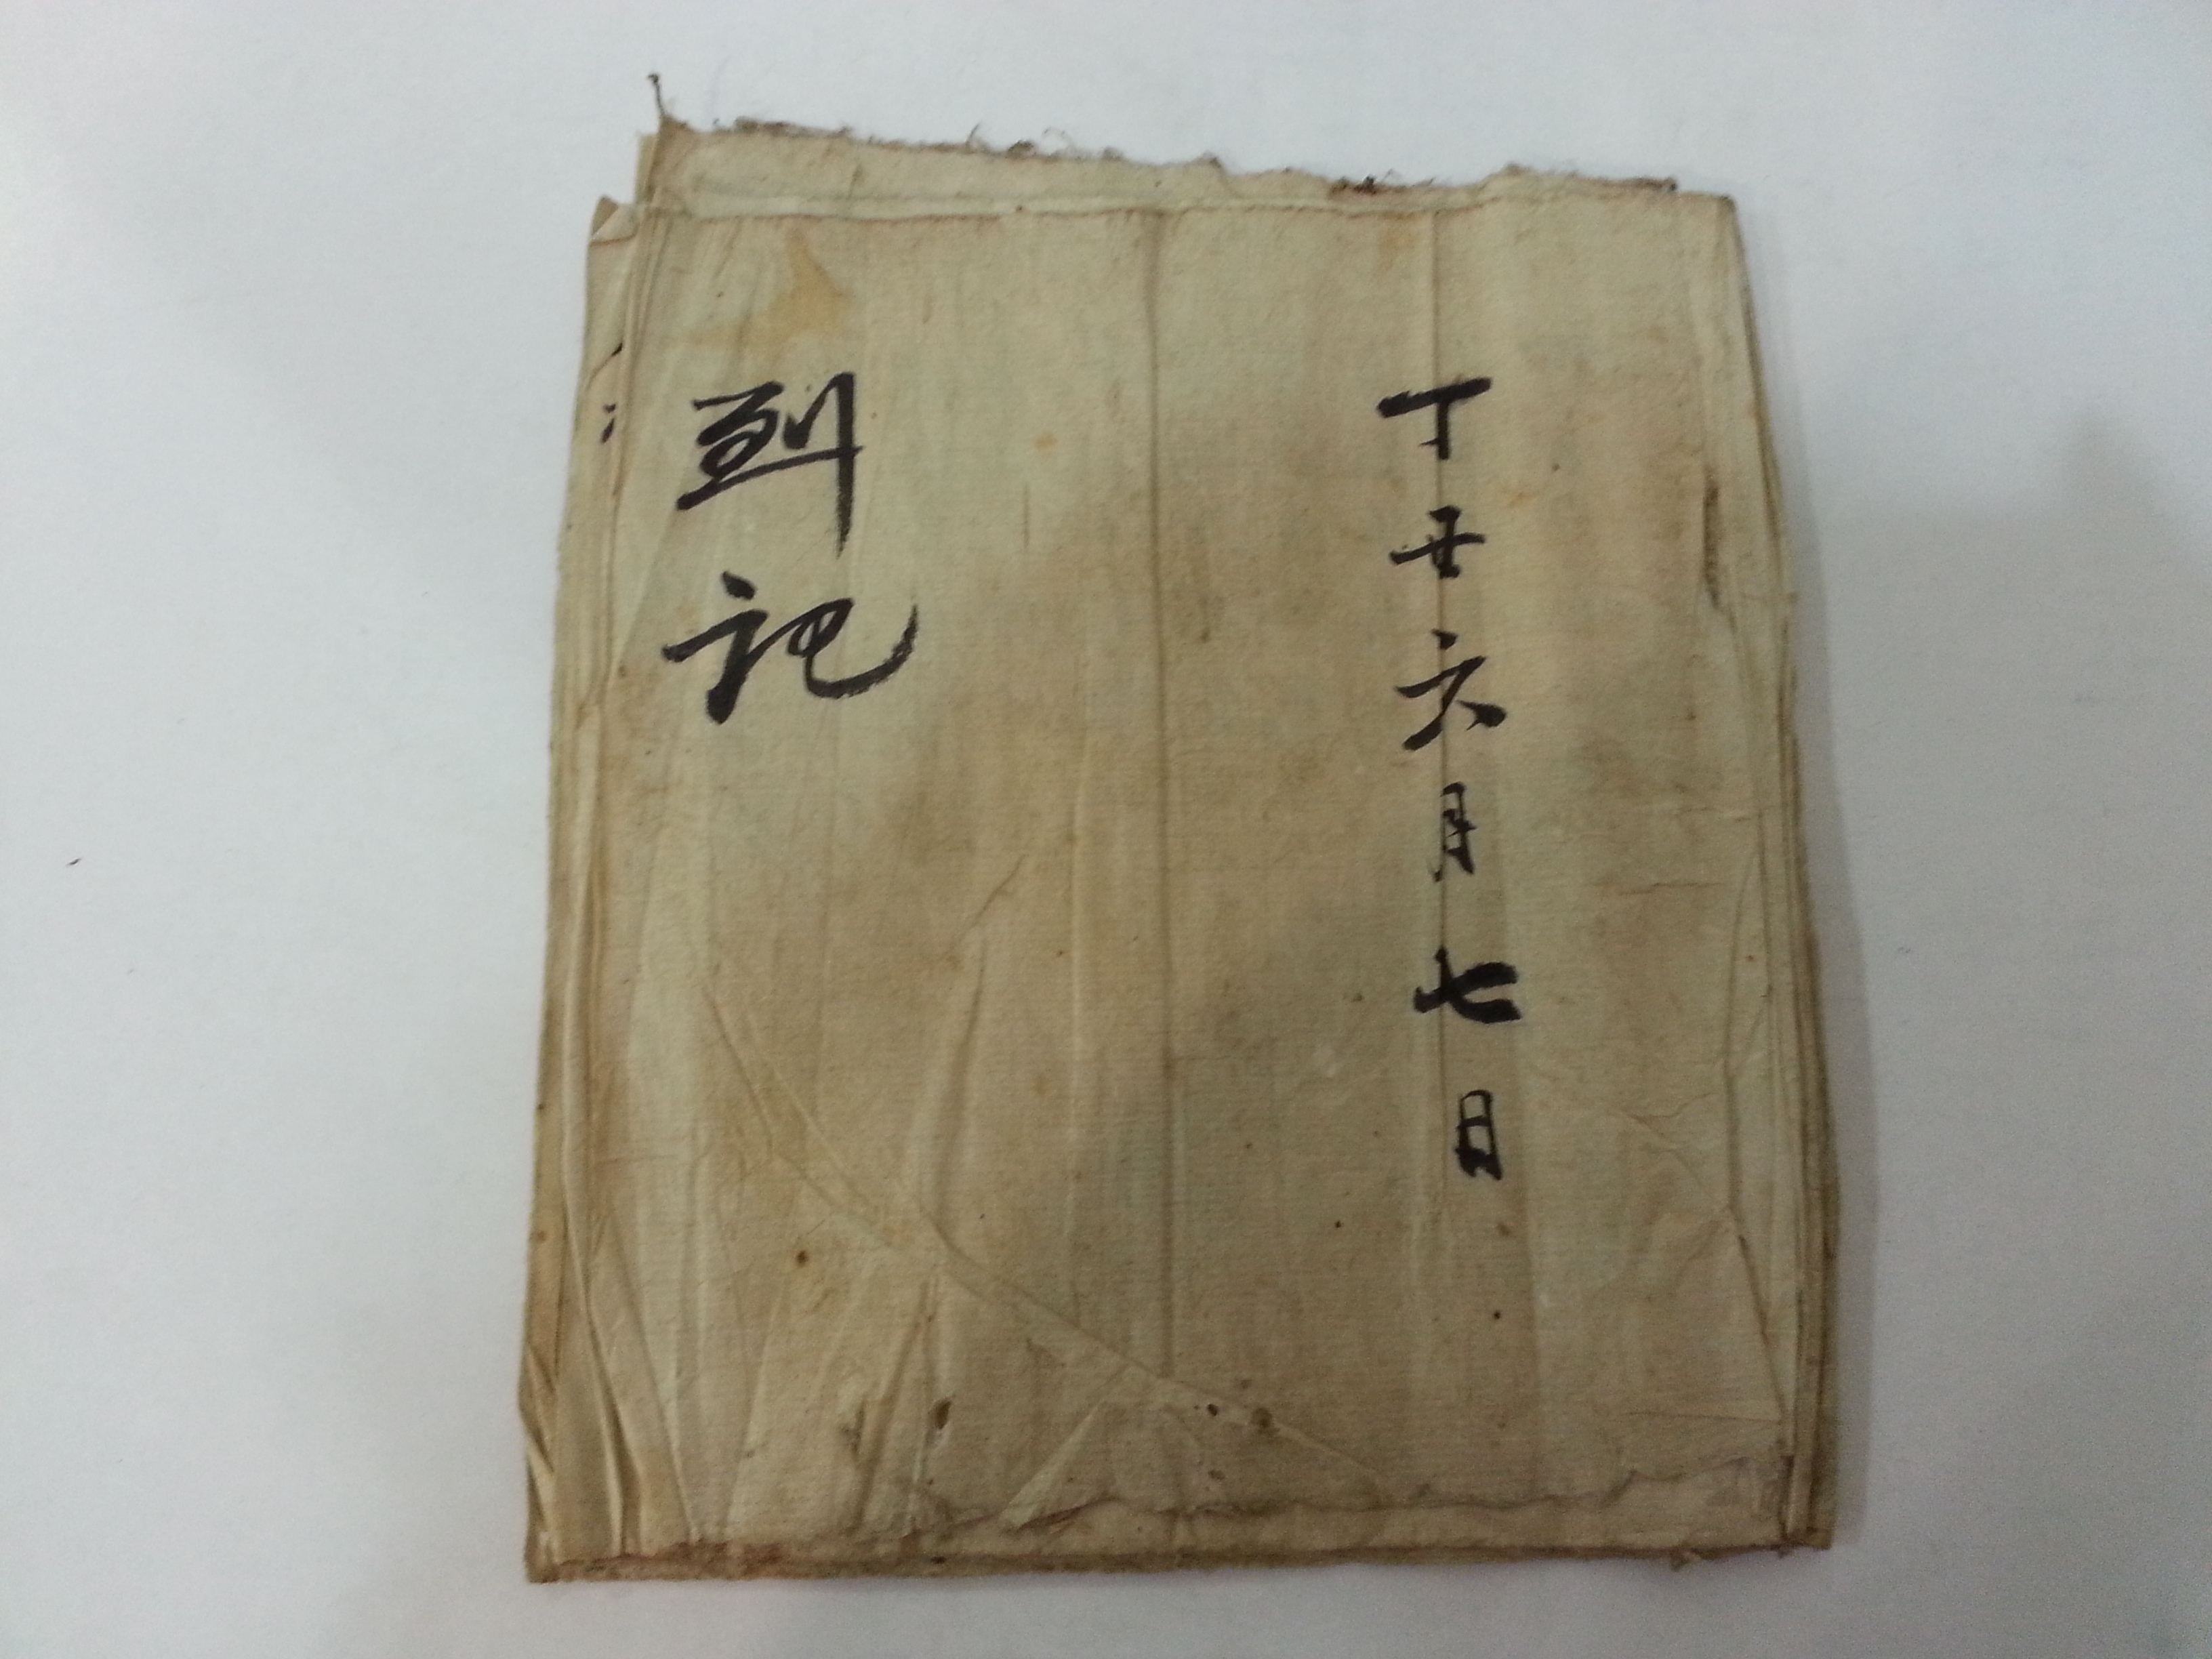 丁丑六月七日
到記